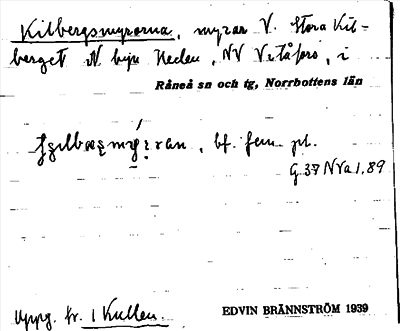 Kilbergsmyrorna, myrar V. Stora Kil-
berget N byn Heden, NV Vitåfors, i
Råneå sn och tg, Norrbottens län
bf. fem. pl.
G 37 N Va 1, 89
Uppg. fr. 1 Kullen.
EDVIN BRÄNNSTRÖM 1939